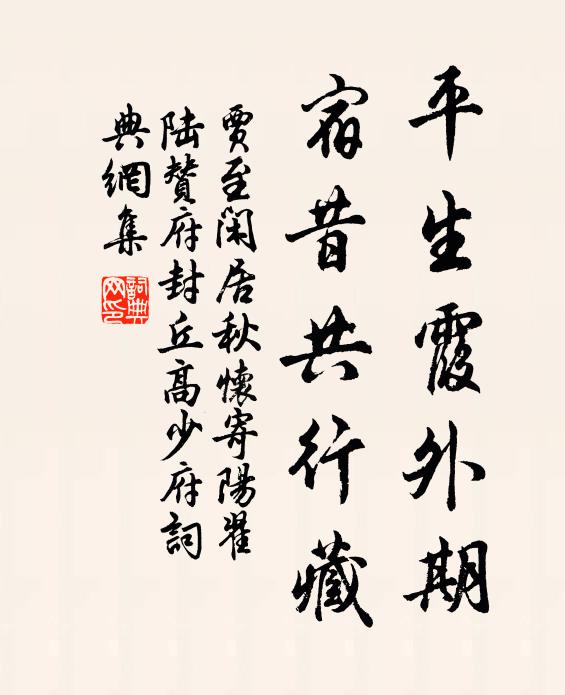 平生霞外期
宿昔共行藏
賈至閑居秋懷寄陽翟
陸贊府封丘高少府詞
典網集
詞典网印